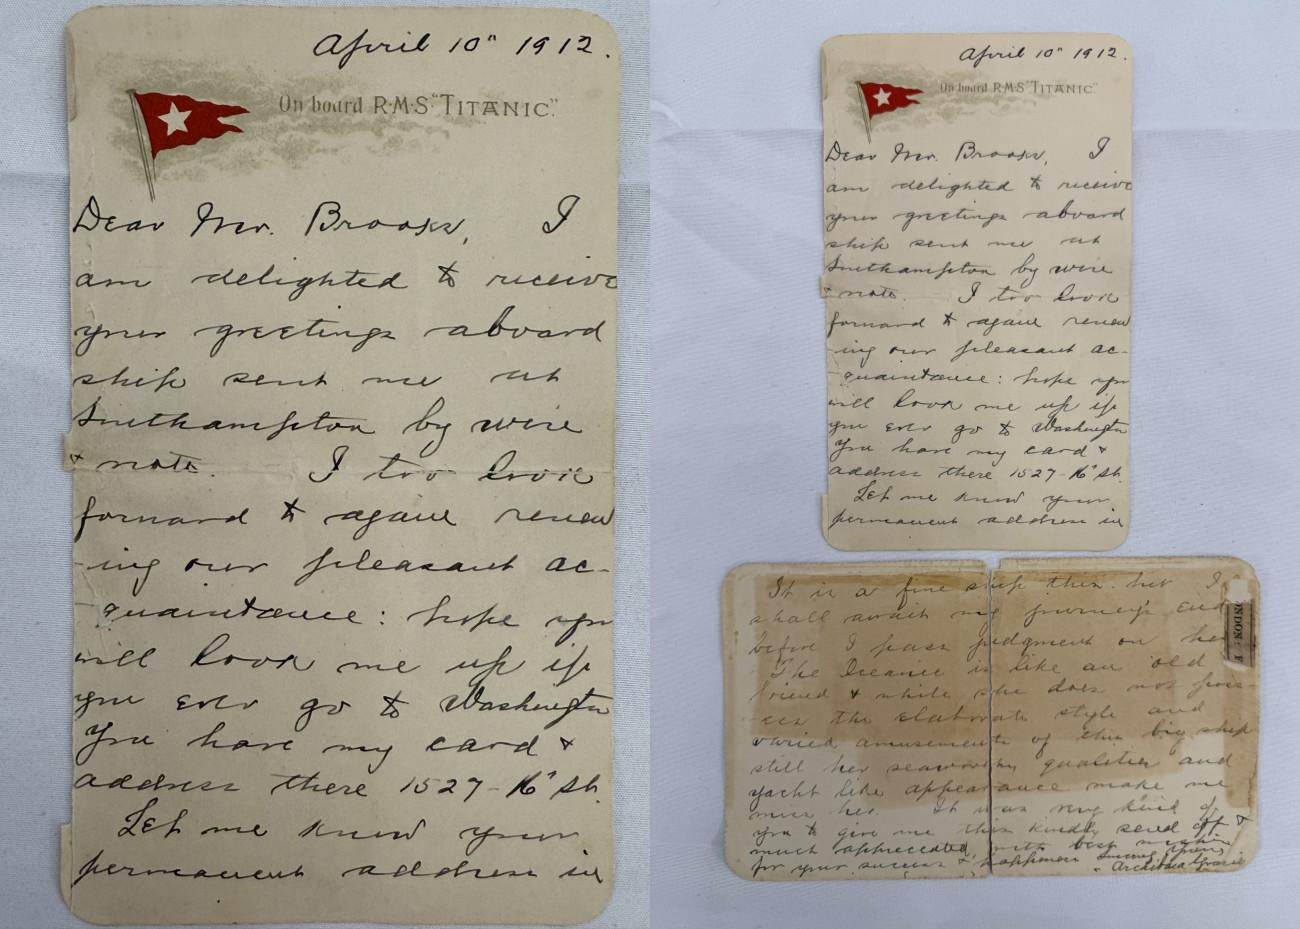 April 10" 1912.
On board R·M·S "TITANIC."
Dear Mr. Brooks, I
am delighted to receive
your greetings aboard
ship sent me at
Southampton by wire
& note. I too look
forward to again renew
-ing our pleasant ac-
quaintance: hope you
will look me up if
you ever go to Washington
You have my card &
address there 1527-16" St.
Let me know your
permanent address in
April 10" 1912.
On board R·M·S "TITANIC."
Dear Mr. Brooks, I
am delighted to receive
your greetings aboard
ship sent me at
Southampton by wire
& note. I too look
forward to again renew
-ing our pleasant ac-
quaintance: hope you
will look me up if
you ever go to Washington
You have my card &
address there 1527-16" St.
Let me know your
permanent address in
It is a fine ship this but I
shall await my journey's end
before I pass judgment on her
The Oceanic is like an old
friend & while she does not poss-
-ess the elaborate style and
varied amusements of this big ship
still her seaworthy qualities and
yacht like appearance make me
miss her. It was very kind of
you to give me this kindly send off &
much appreciated, with best wishes
for your success & happiness
Archibald Gracie
ONDON: F